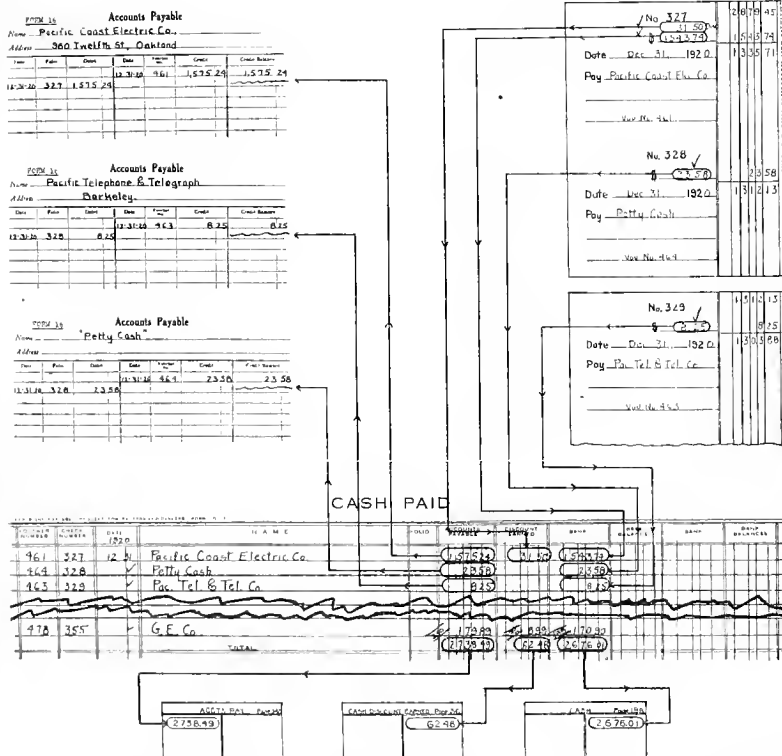 FORM 16 Accounts Payable
Name Pacific Coast Electric Co.,
Address 360 Twelfth St., Oakland
Date Folio Debit Date Voucher No. Credit Credit Balance
12-31-20 461 1,575 24 1,575 24
12-31-20 327 1,575 24
FORM 16 Accounts Payable
Name Pacific Telephone & Telegraph
Address Berkeley.
Date Folio Debit Date Voucher No. Credit Credit Balance
12-31-20 463 8 25 8 25
12-31-20 328 8 25
FORM 16 Accounts Payable
Name "Petty Cash"
Address
Date Folio Debit Date Credit Credit Balance
12-31-20 464 23 58 23 58
12-31-20 328 23 58
No 327
31 50
1543 74
2879 45
1543 74
1335 71
Date Dec 31, 1920
Pay Pacific Coast Elec Co.
Vou No. 461
No. 328
$ 23 58
23 58
Date Dec 31. 1920
1312 13
Pay Petty Cash
Vou No. 464
No. 329
1312 13
$ 8 25
8 25
Date Dec 31. 1920
1303 88
Pay Pac Tel & Tel Co
Vou No. 463
CASH PAID
VOUCHER NUMBER CHECK NUMBER DATE 1920 NAME FOLIO ACCOUNTS PAYABLE DISCOUNT EARNED BANK BANK BALANCES BANK BANK BALANCES
461 327 12 31 Pacific Coast Electric Co. 1,575 24 31 50 1543 74
464 328 ✓ Petty Cash 23 58 23 58
463 329 ✓ Pac. Tel & Tel. Co 8 25 8 25
478 355 ✓ G. E. Co. 179 89 8 99 170 90
TOTAL 2738 49 62 48 2676 01
ACCTS PAY.
2738.49
CASH DISCOUNT EARNED
62 48
CASH
2676.01